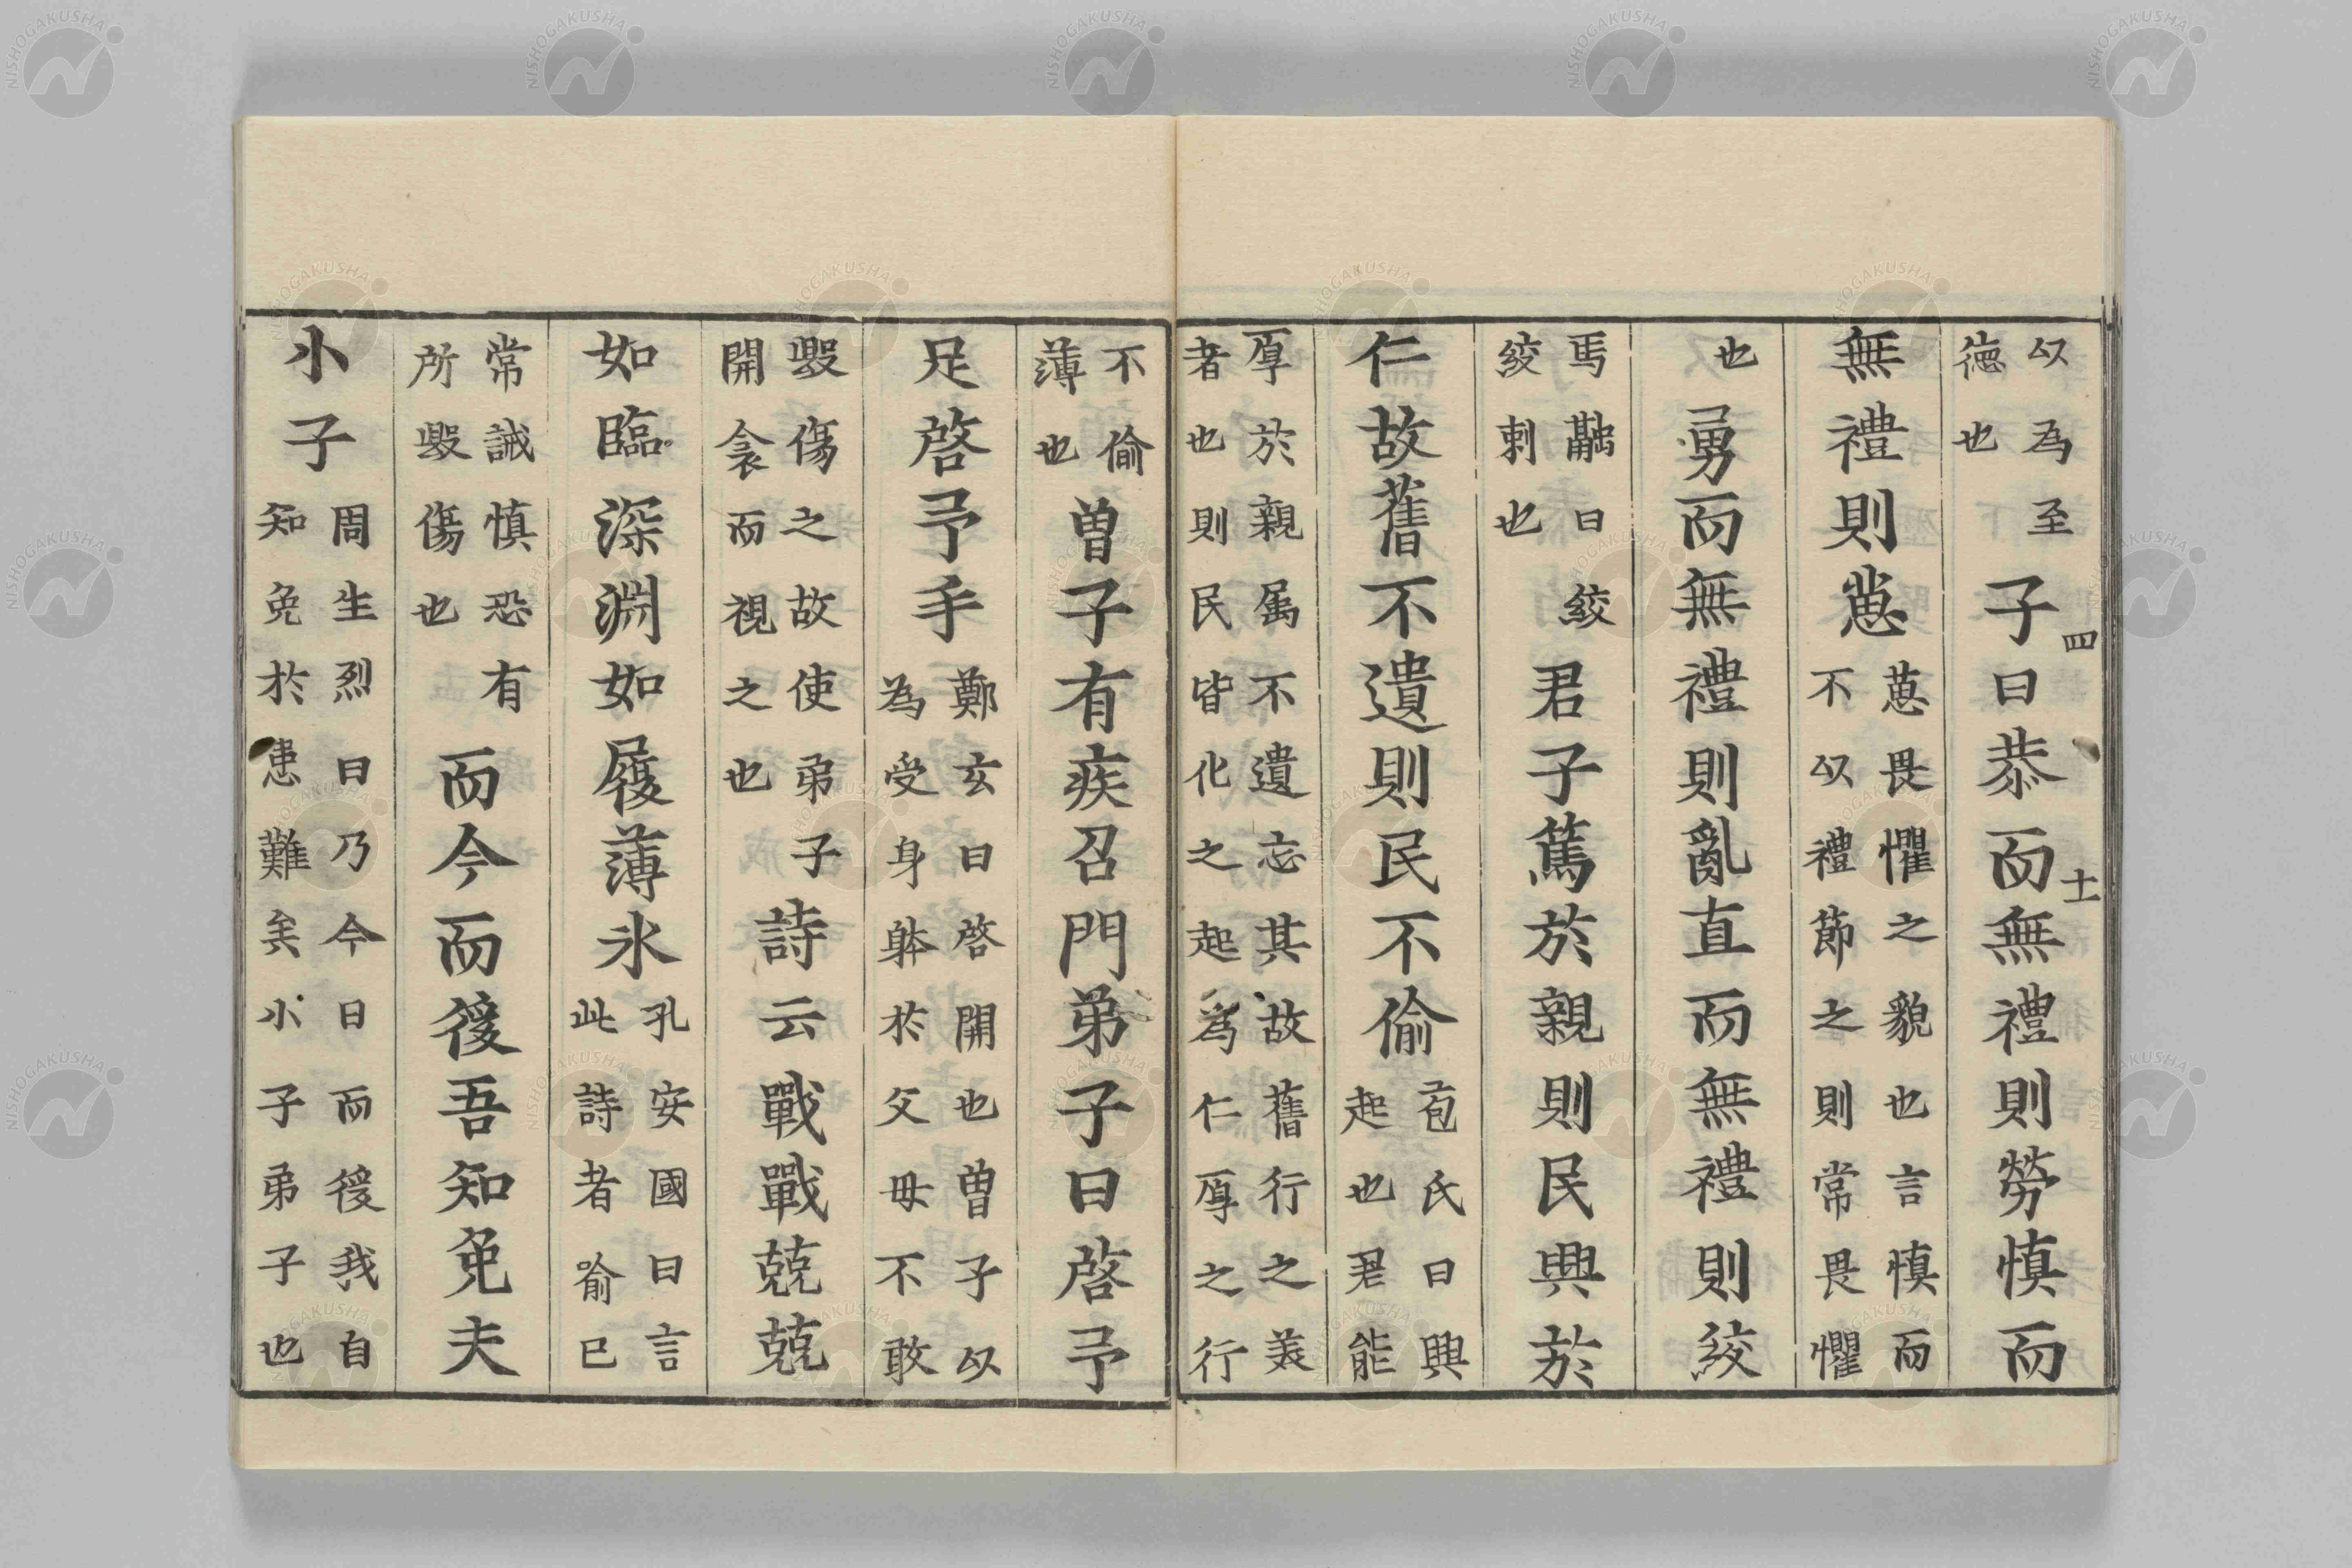 以為至德也子曰恭而無禮則勞慎而
無禮則葸葸畏懼之貌也言慎而不以禮節之則常畏懼
也勇而無禮則亂直而無禮則絞
馬融曰絞絞刺也君子篤於親則民興於
仁故舊不遺則民不偷苞氏曰興起也君能
厚於親属不遺忘其故舊行之美者也則民皆化之起為仁厚之行
不偷薄也曽子有疾召門弟子曰啓予
足啓予手鄭玄曰啓開也曽子以為受身躰於父母不敢
毀傷之故使弟子開衾而視之也詩云戰戰兢兢
如臨深淵如履薄氷孔安國曰言此詩者喻己
常誡慎恐有所毀傷也而今而後吾知免夫
小子周生烈曰乃今日而後我自知免於患難矣小子弟子也
四
NISHOGAKUSHA